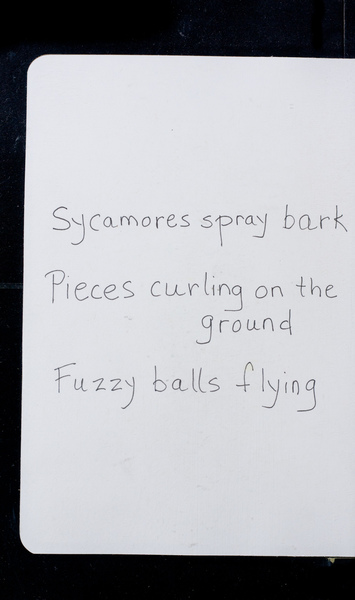 Sycamores spray bark
Pieces curling on the
ground
Fuzzy balls flying